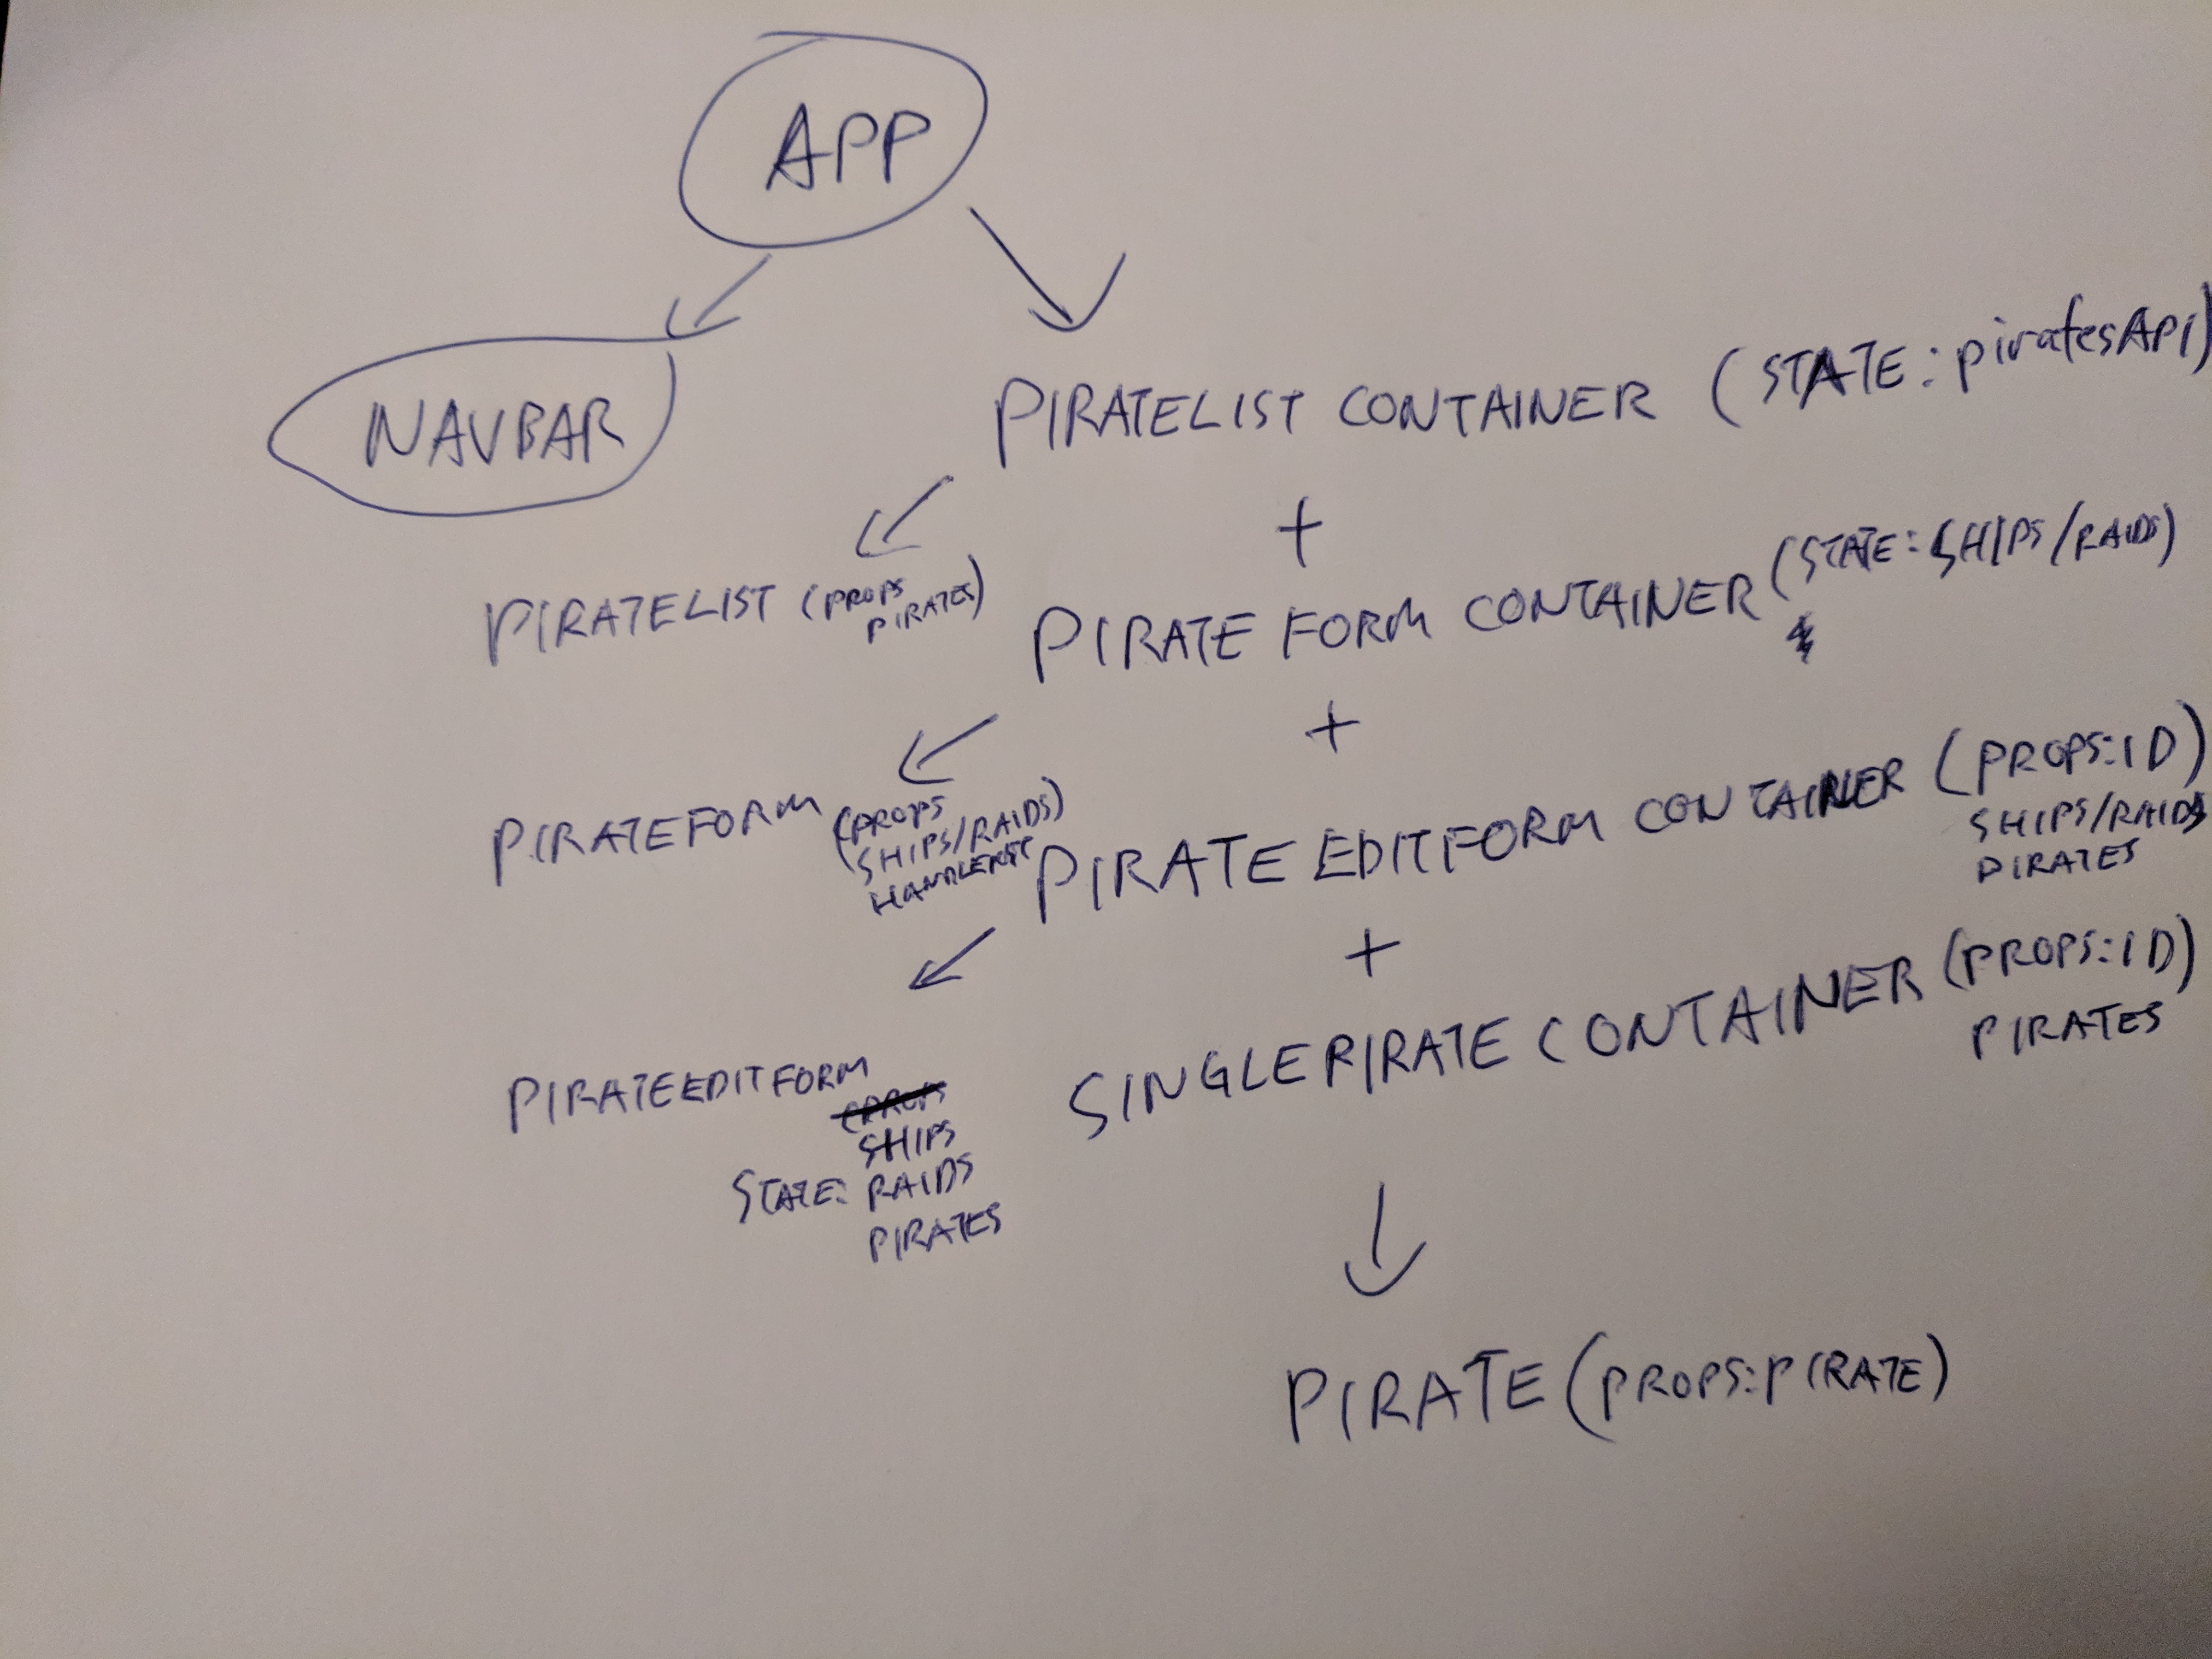 APP
NAVBAR
PIRATELIST CONTAINER (STATE: piratesAPI)
+
PIRATELIST (PROPS
PIRATES)
PIRATE FORM CONTAINER (STATE: SHIPS/RAIDS)
+
PIRATEFORM (PROPS
SHIPS/RAIDS)
PIRATE EDITFORM CONTAINER (PROPS:ID)
SHIPS/RAIDS
PIRATES
+
PIRATEEDITFORM
(PROPS
SHIPS
STATE: RAIDS
PIRATES
SINGLEPIRATE CONTAINER (PROPS:ID)
PIRATES
PIRATE (PROPS:PIRATE)